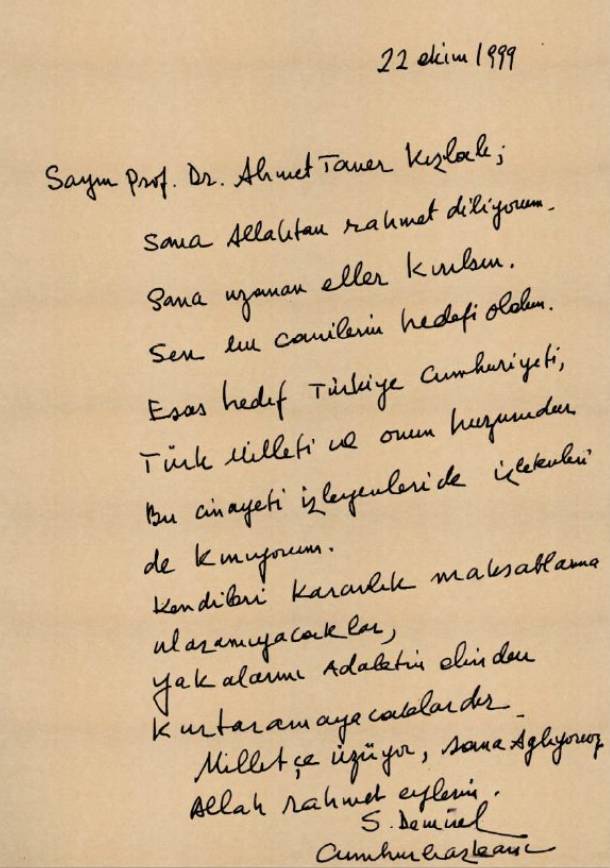 22 ekim 1999
Sayın Prof. Dr. Ahmet Taner Kışlalı;
Sana Allahtan rahmet diliyorum.
Sana uzanan eller kırılsın.
Sen bu canilerin hedefi oldun.
Esas hedef Türkiye Cumhuriyeti,
Türk Milleti ve onun huzurudur
Bu cinayeti işleyenleri de işletenleri
de kınıyorum.
Kendileri karanlık maksatlarına
ulaşamıyacaklar,
yakalarını Adaletin elinden
kurtaramayacaklardır
Milletçe üzgün, sana Ağlıyoruz
Allah rahmet eylesin.
S. Demirel
Cumhurbaşkanı